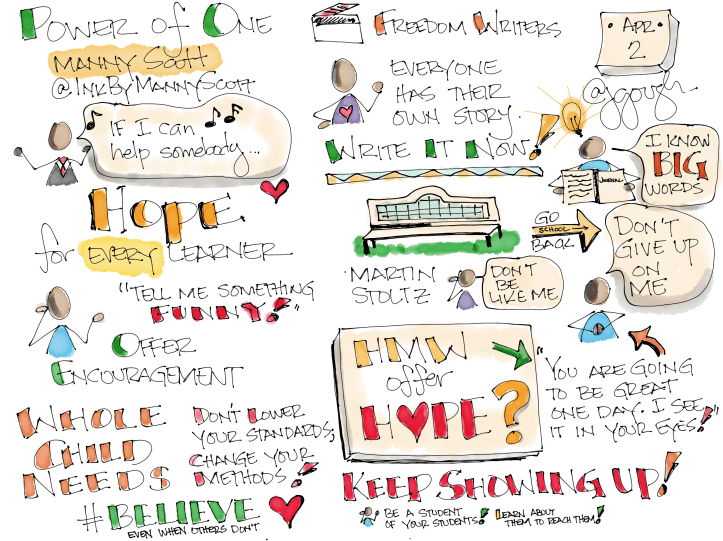 Power of One
Manny Scott
@InkByMannyScott
If I can
help somebody...
Hope
for every learner
"Tell me something
funny!"
Offer
Encouragement
Whole
Child
Needs
Don't lower
your standards,
change your
methods!
#Believe
even when others don't
Freedom Writers
Everyone
has their
own story.
Write It Now!
Apr
2
@jgough
Journal
I know
BIG
words
Go
School
Back
Martin
Stoltz
Don't
be
like me
Don't
give up
on
me
HMW
offer
HOPE?
"You are going
to be great
one day. I see
it in your eyes!"
Keep Showing Up!
Be a student
of your students!
Learn about
them to reach them!